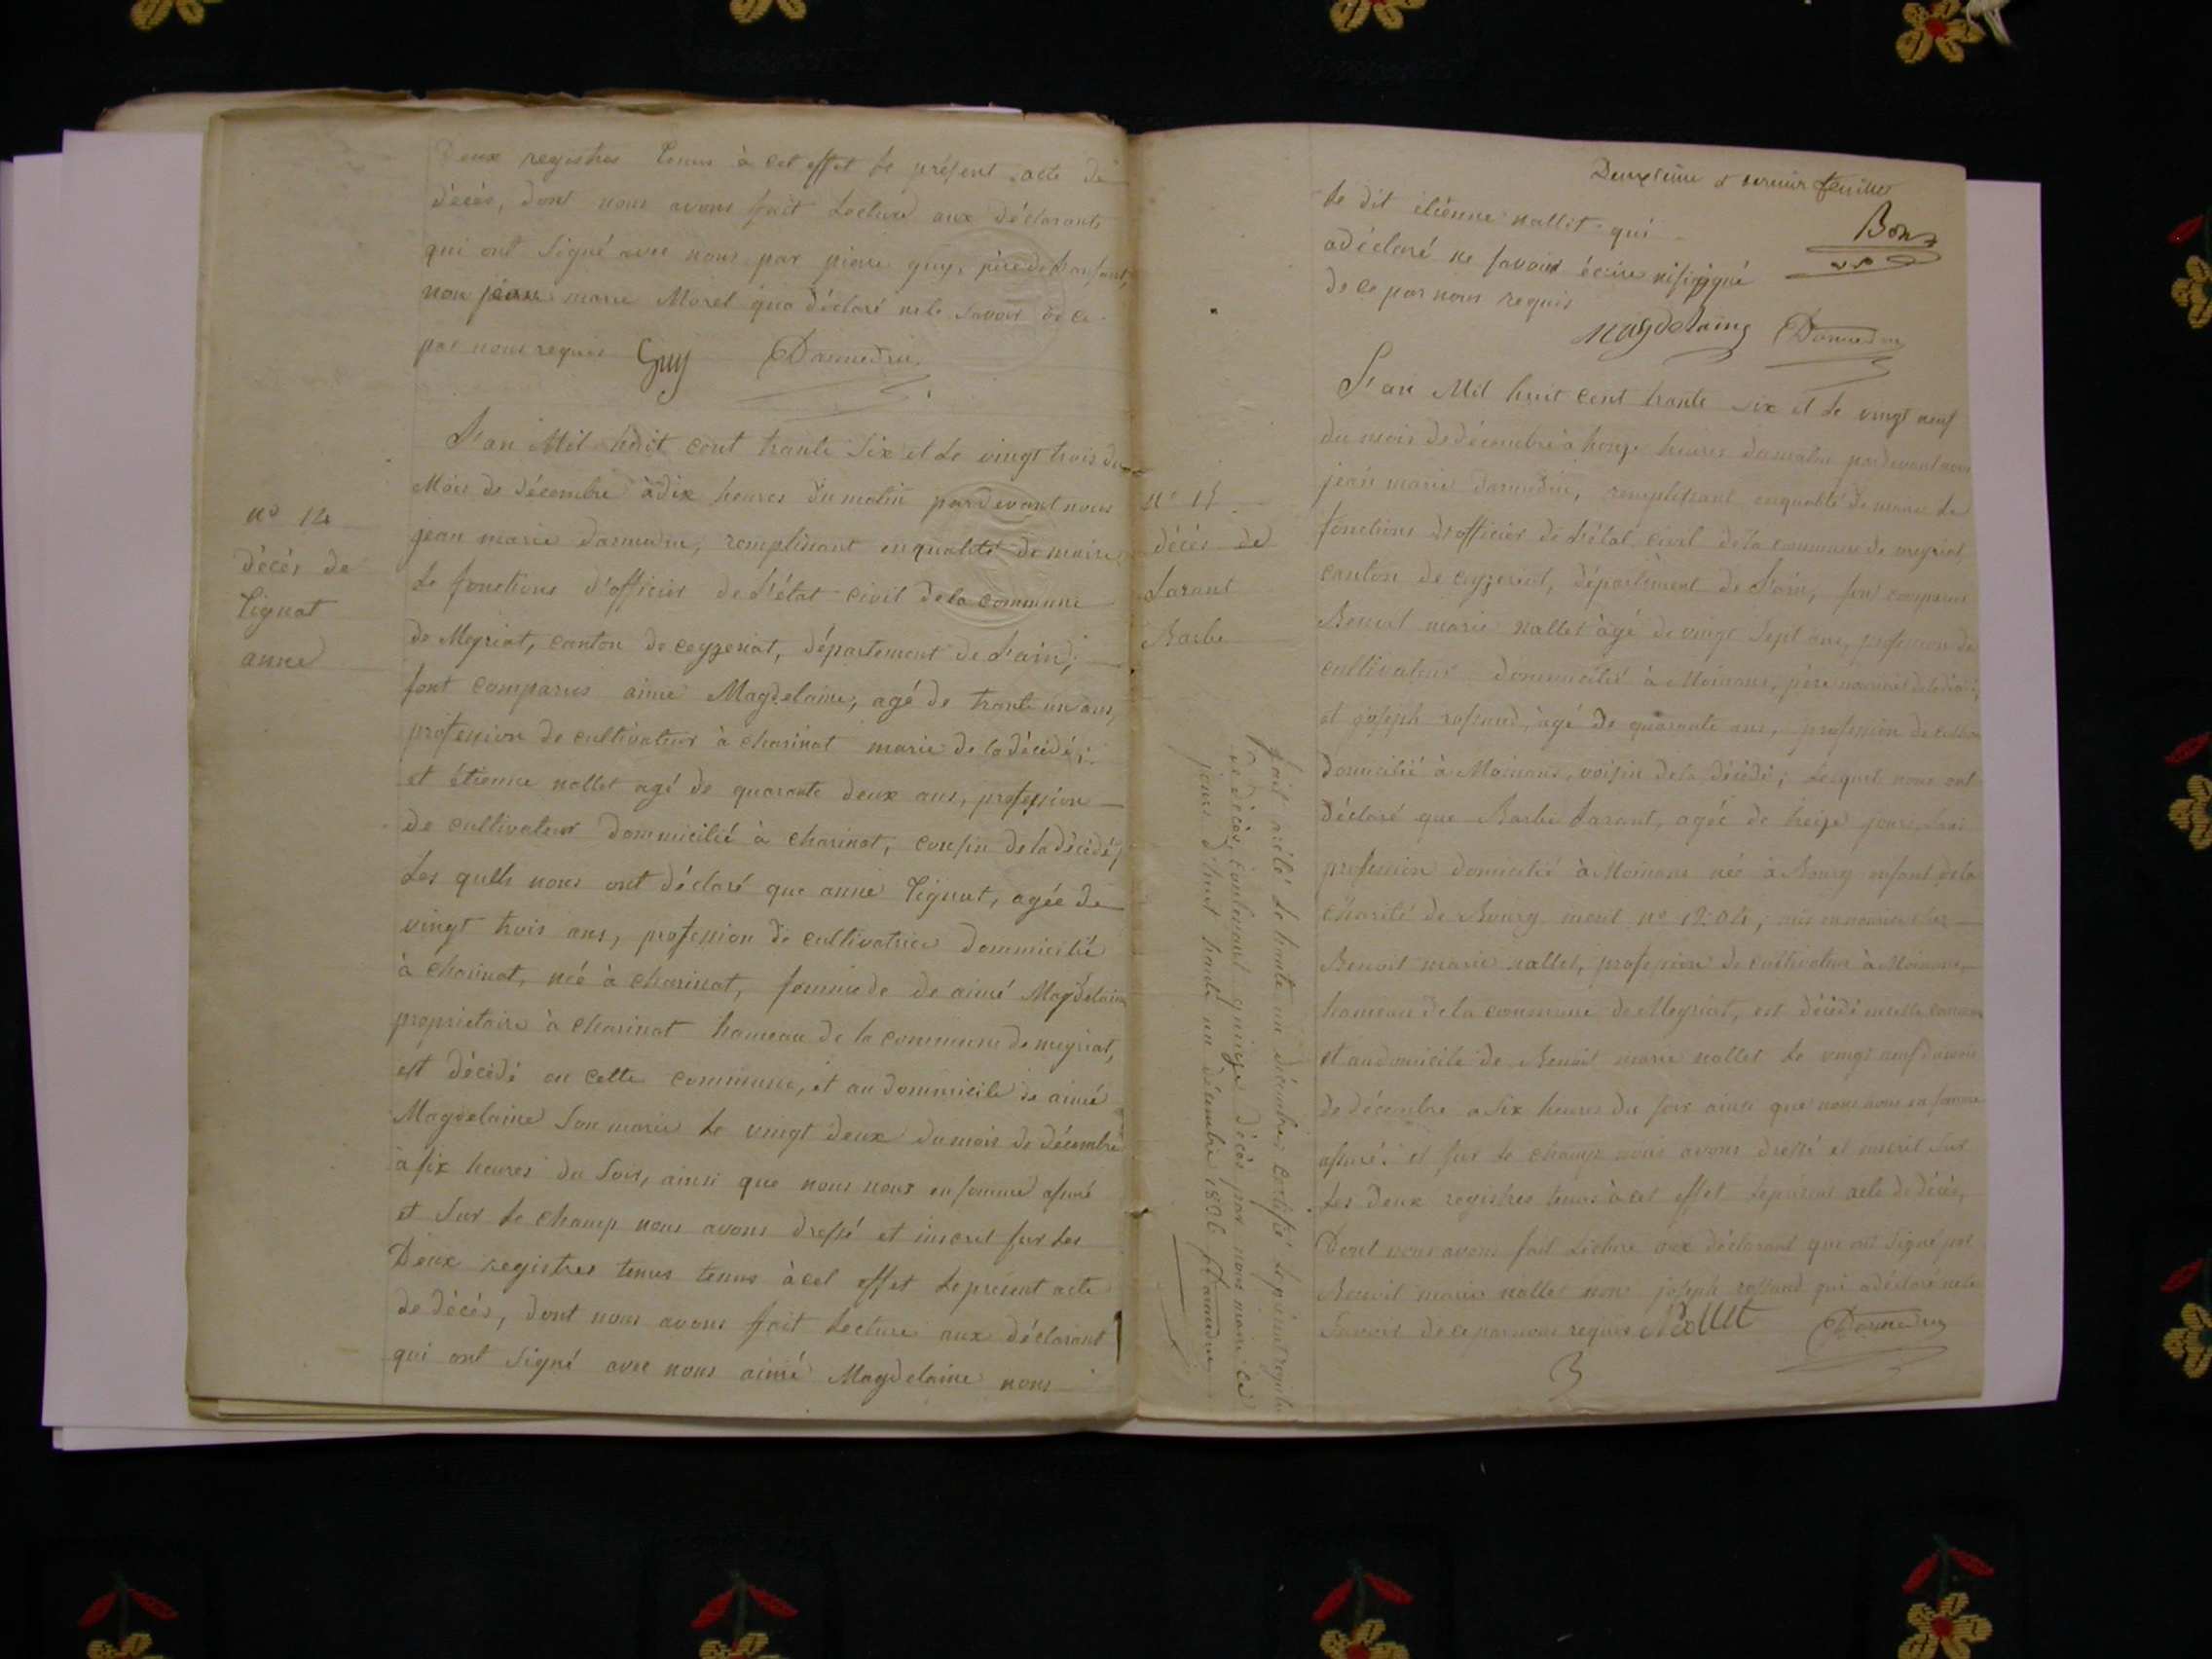 Deux registres tenus à cet effet le présent acte de
décès, dont nous avons fait Lecture aux déclarants
qui ont signé avec nous par pierre guy, père de l'enfant,
non jean marie Morel qui a déclaré ne le savoir de ce
par nous requis Guy Darmedru
L'an Mil huit cent trante six et le vingt trois du
Mois de décembre à dix heures du matin pardevant nous
jean marie darmedru, remplissant en qualité de maire
le fonctions d'officier de l'état civil de la commune
de Meyriat, canton de ceyzeriat, département de l'ain,
sont comparus aimé Magdelaine, agé de trante un ans,
profession de cultivateur à charinat marie de la décédé;
et étienne nallet agé de quarante deux ans, profession
de cultivateur dommicilié à charinat, cousin de la décédé,
Les quels nous ont déclaré que anne Tignat, agée de
vingt trois ans, profession de cultivatrice dommicilié
à charinat, née à charinat, femme de de aimé Magdelaine
proprietaire à charinat hameau de la commune de meyriat,
est décédé en cette commune, et au dommicile de aimé
Magdelaine son marie le vingt deux du mois de décembre
à six heures du soir, ainsi que nous nous en somme assuré
et sur le champ nous avons dressé et inscrit sur les
Deux registres tenus tenus à cet effet le présent acte
de décès, dont nous avons fait Lecture aux déclarant
qui ont signé avec nous aimé Magdelaine nons
n° 14
décés de
Tignat
anne
Deuxième et dernier feuillet
Bon
le dit étienne nallet qui
a déclaré ne savoir écrire ni signé
de ce par nous requis
magdelaine Darmedru
L'an Mil huit cent trante six et le vingt neuf
du mois de décembre à honze heures du matin pardevant nous
jean marie darmedru, remplissant en qualité de maire le
fonctions d'officier de l'état civil de la commune de meyriat,
canton de ceyzeriat, département de l'ain, son comparus
Benoit marie nallet agé de vingt sept ans, profession de
cultivateur dommicilié à Moinans, père nourricier de la décédé,
et joseph rossand, agé de quarante ans, profession de
domicilié à Moinans, voisin de la décédé; Lesquel nous ont
déclaré que Barbe Larant, agée de treize jours, sans
profession domicilié à Moinans née à Bourg enfant de la
charité de Bourg inscrit n° 1204, mis en nourrice chez
Benoit marie nallet, profession de cultivateur à Moinans,
hameau de la commune de Meyriat, est décédé en cette commune
et au domicile de Benoit marie nallet le vingt neuf du mois
de décembre a six heures du soir ainsi que nous nous en somme
assuré. et sur le champs nous avons dressé et inscrit sur
Les deux registres tenus à cet effet le présent acte de décès,
Dont nous avons fait Lecture aux déclarant qui ont signé par
Benoit marie nallet non joseph rossand qui a déclaré ne le
savoir de ce par nous requis Nallet Darmedru
n° 15
décés de
Larant
Barbe
fait arêté le trante un décembre certifié le présent registre
de décès, contenant quinze décès par nous maire ce
jours d'huit trante un décembre 1836 Darmedru